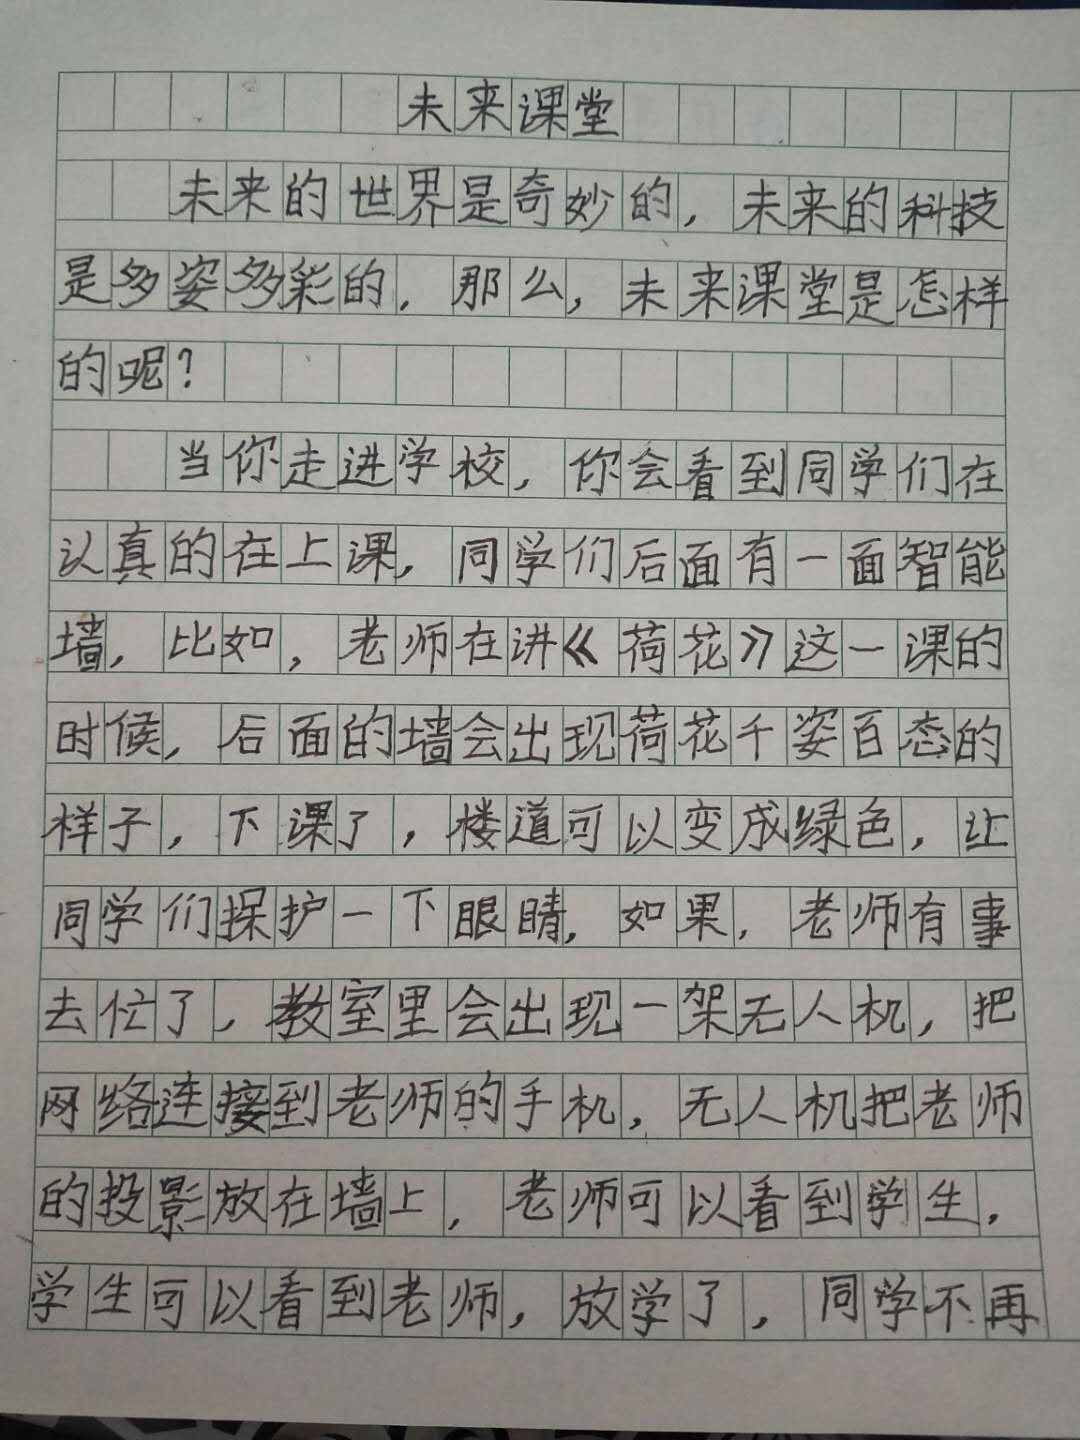 未来课堂
未来的世界是奇妙的，未来的科技
是多姿多彩的，那么，未来课堂是怎样
的呢？
当你走进学校，你会看到同学们在
认真的在上课，同学们后面有一面智能
墙，比如，老师在讲《荷花》这一课的
时候，后面的墙会出现荷花千姿百态的
样子，下课了，楼道可以变成绿色，让
同学们保护一下眼睛，如果，老师有事
去忙了，教室里会出现一架无人机，把
网络连接到老师的手机，无人机把老师
的投影放在墙上，老师可以看到学生，
学生可以看到老师，放学了，同学不再